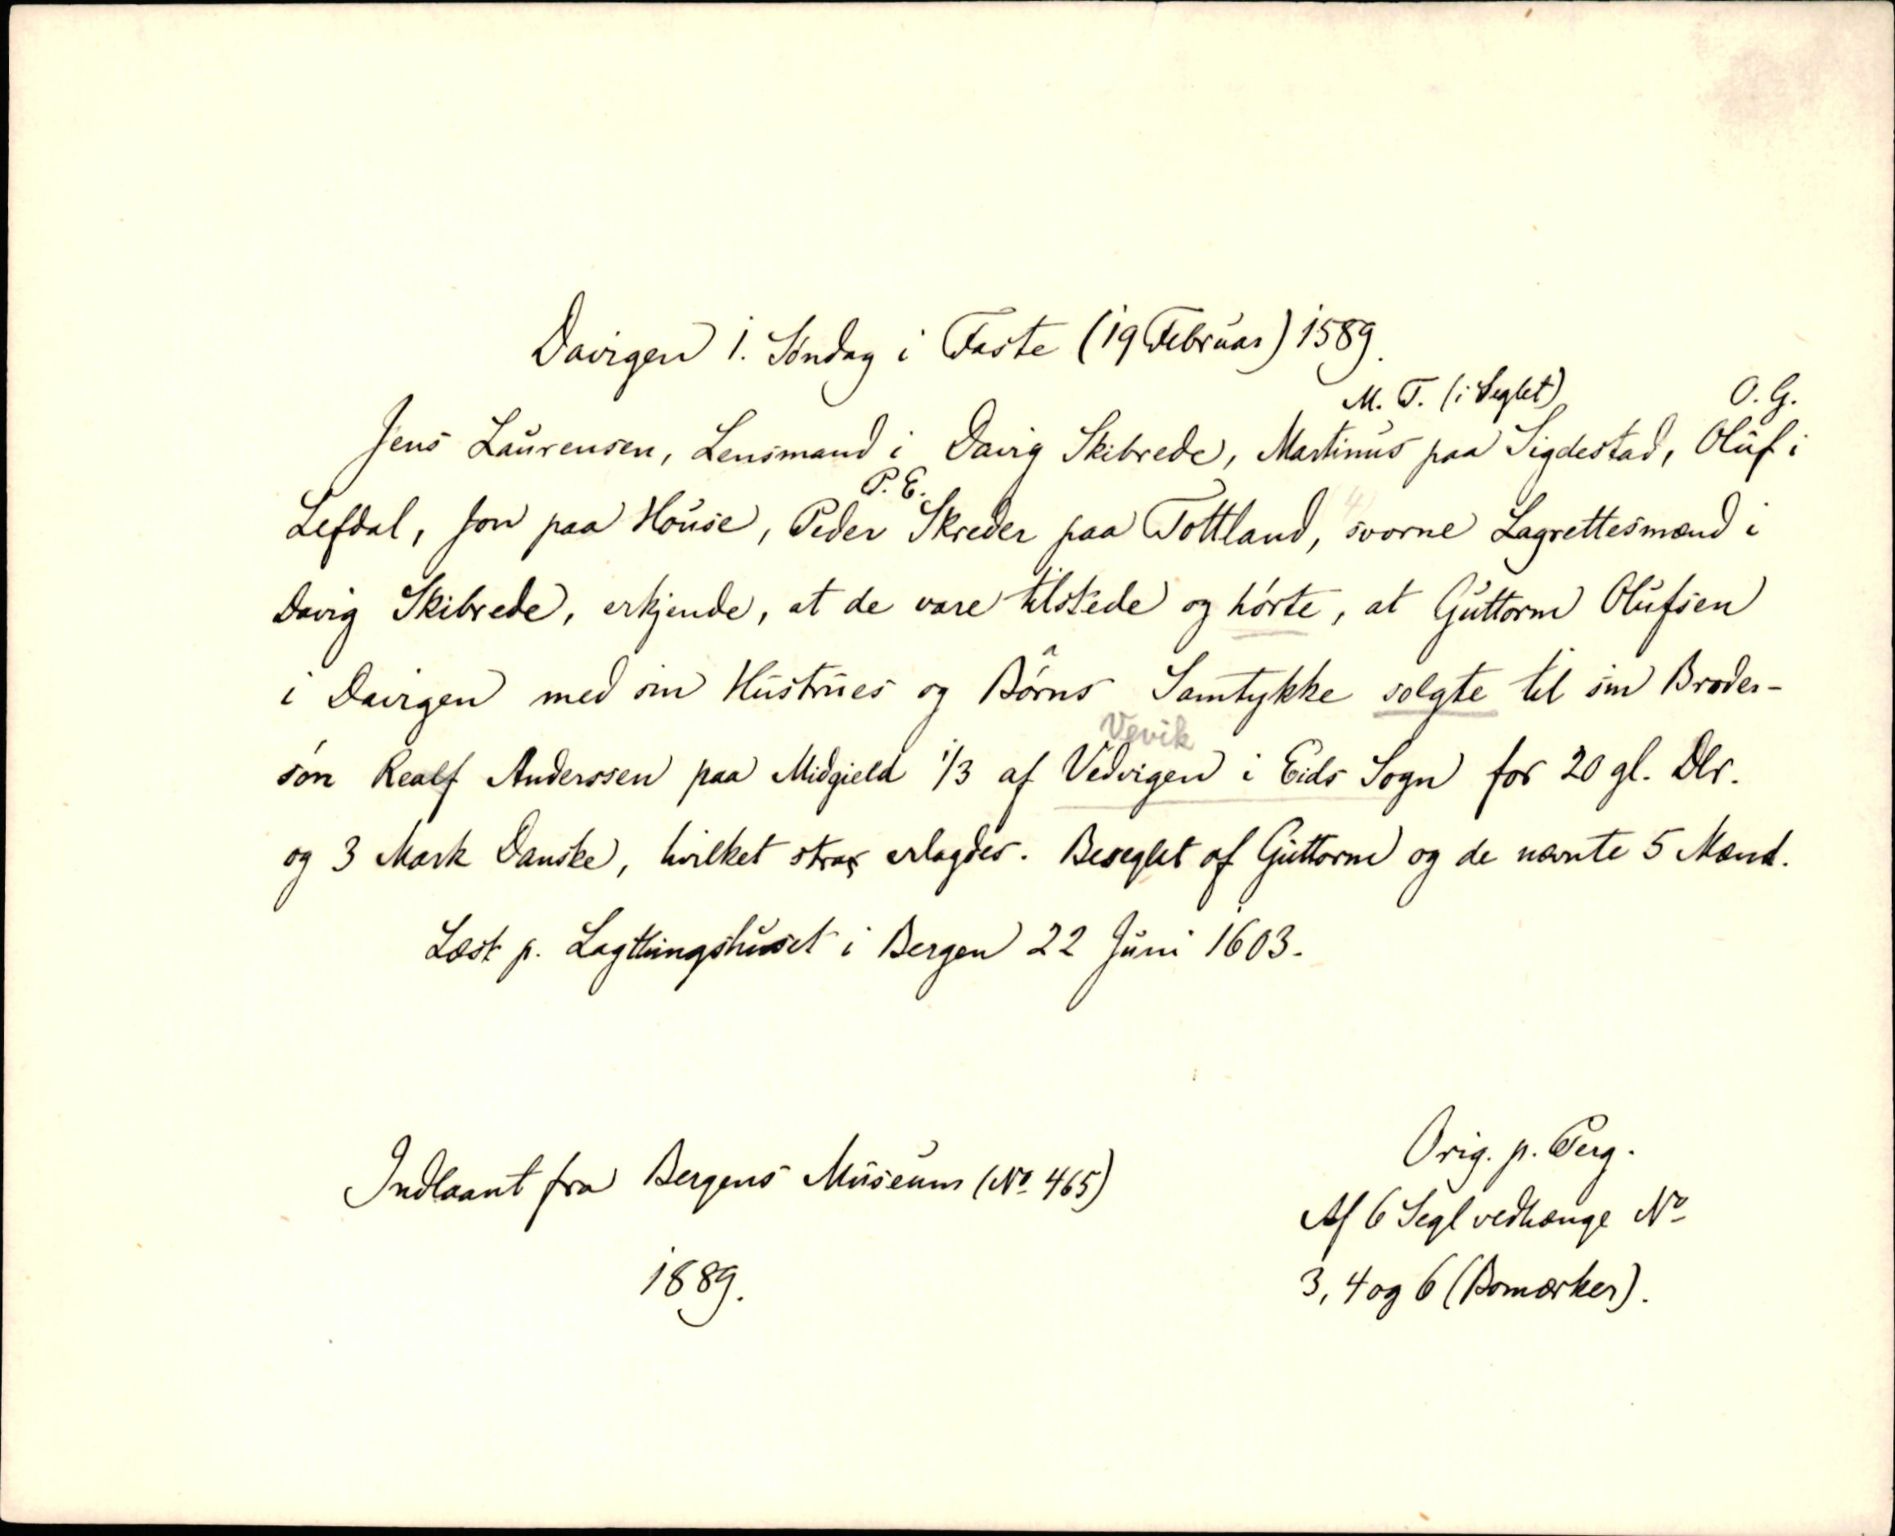 Davigen 1. Søndag i Faste (19 Februar) 1589.
M. T. (i Seglet) O. G.
Jens Laurensen, Lensmand i Davig Skibrede, Martinus paa Sigdestad, Oluf i
P. E.
Lefdal, Jon paa House, Peder Skreder paa Tottland, svorne Lagrettesmænd i
Davig Skibrede, erkjende, at de vare tilstede og hørte, at Guttorm Olufsen
i Davigen med sin Hustrues og Børns Samtykke solgte til sin Broder-
Vevik
søn Realf Anderssen paa Midgield 1/3 af Vedvigen i Eids Sogn for 20 gl. Dlr.
og 3 Mark Danske, hvilket strax erlagdes. Beseglet af Guttorm og de nævnte 5 Mænd.
Læst p. Lagthingshuset i Bergen 22 Juni 1603.
Orig. p. Perg.
Indlaant fra Bergens Museum (No 465)
Af 6 Segl vedhænge No
1889.
3, 4 og 6 (Bomærker).